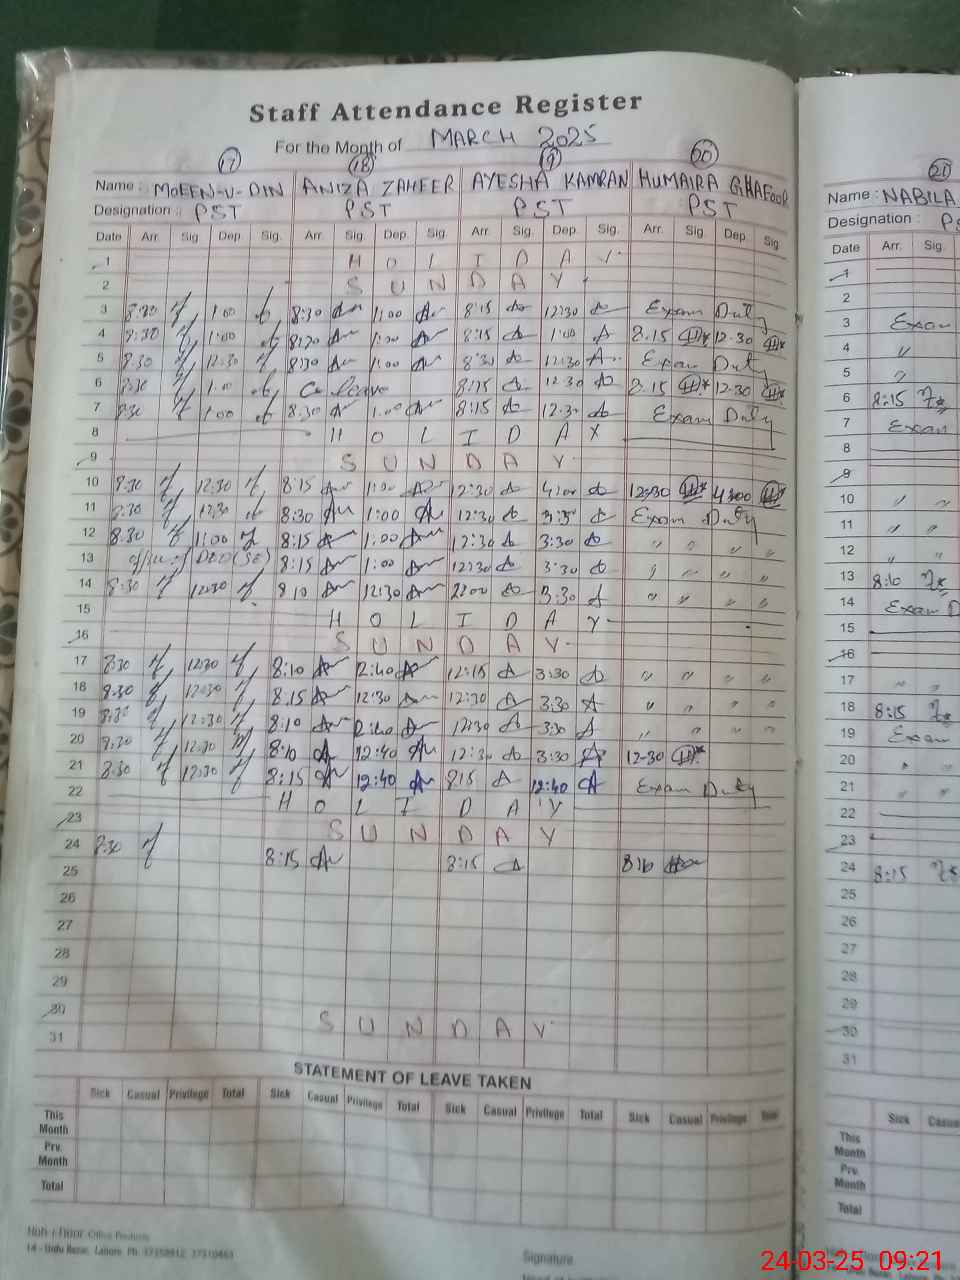 Staff Attendance Register
For the Month of MARCH 2025
17 18 20
Name : MOEEN-U-DIN ANIZA ZAHEER AYESHA KAMRAN HUMAIRA GHAFOOR
Designation : PST PST PST PST
Date Arr. Sig. Dep. Sig. Arr. Sig. Dep. Sig. Arr. Sig. Dep. Sig. Arr. Sig. Dep. Sig.
1 H O L I D A Y
2 S U N D A Y
3 8:30 1:00 8:30 1:00 8:15 12:30 Exam Duty
4 8:30 1:00 8:30 1:00 8:15 1:00 8:15 12:30
5 8:30 12:30 8:30 1:00 8:30 12:30 Exam Duty
6 8:30 1:00 leave 8:15 12:30 8:15 12:30
7 8:30 1:00 8:30 1:00 8:15 12:30 Exam Duty
8 H O L I D A Y
9 S U N D A Y
10 8:30 12:30 8:15 1:00 12:30 4:00 12:30 4:00
11 8:30 12:30 8:30 1:00 12:30 Exam Duty
12 8:30 1:00 8:15 1:00 12:30 3:30 " " " "
13 DEO (SE) 8:15 1:00 12:30 3:30 " " " "
14 8:30 12:30 8:10 12:30 3:30 " " " "
15 H O L I D A Y
16 S U N D A Y
17 8:30 12:30 8:10 12:40 12:15 3:30 " " " "
18 8:30 12:30 8:15 12:30 12:30 3:30 " " " "
19 8:30 12:30 8:10 12:40 12:30 3:30 " " " "
20 8:30 12:30 8:10 12:40 12:30 3:30 12-30
21 8:30 12:30 8:15 12:40 8:15 12:40 Exam Duty
22 H O L I D A Y
23 S U N D A Y
24 8:30 8:15 8:15 8:10
25
26
27
28
29
30 S U N D A Y
31
STATEMENT OF LEAVE TAKEN
Sick Casual Privilege Total Sick Casual Privilege Total Sick Casual Privilege Total Sick Casual Privilege Total
This Month
Prv. Month
Total
Office Products
14 - Urdu Bazar, Lahore. Ph.
Signature
21
Name : NABILA
Designation :
Date Arr. Sig.
1
2
3 Exam
4 "
5 "
6 8:15
7 Exam
8
9
10 " "
11 " "
12 " "
13 8:10
14 Exam D
15
16
17 " "
18 8:15
19 Exam
20 " "
21 " "
22
23
24 8:15
25
26
27
28
29
30
31
Sick
This Month
Prv. Month
Total
24-03-25 09:21